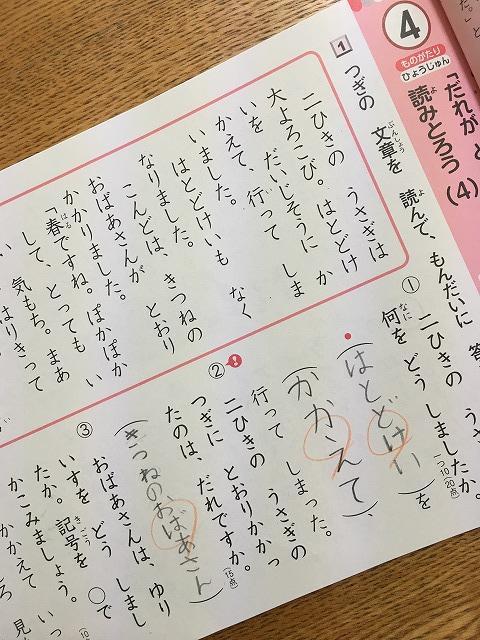 4
ものがたり
ひょうじゅん
「だれが ど
読みとろう (4)
よ
た。」と
1 つぎの 文章を 読んで、もんだいに 答
ぶんしょう
よ
二ひきの うさぎは
大よろこび。はとどけ
いを だいじそうに か
かえて、行って しま
いました。
はとどけいも なく
なりました。
こんどは、きつねの
おばあさんが とおり
かかりました。
「春ですね。ぽかぽか
はる
して、とっても い
い 気もち。まあ
はりきって
① 二ひきの うさ
何を どう しましたか。
なに
一つ10(20点)
(はとどけい)を
(かかえて)、
行って しまった。
② 二ひきの うさぎの
つぎに とおりかかっ
たのは、だれですか。
(15点)
(きつねのおばあさん)
③ おばあさんは、ゆり
いすを どう しまし
たか。記号を ○で
きごう
かこみましょう。
かかえて いっ
見
10